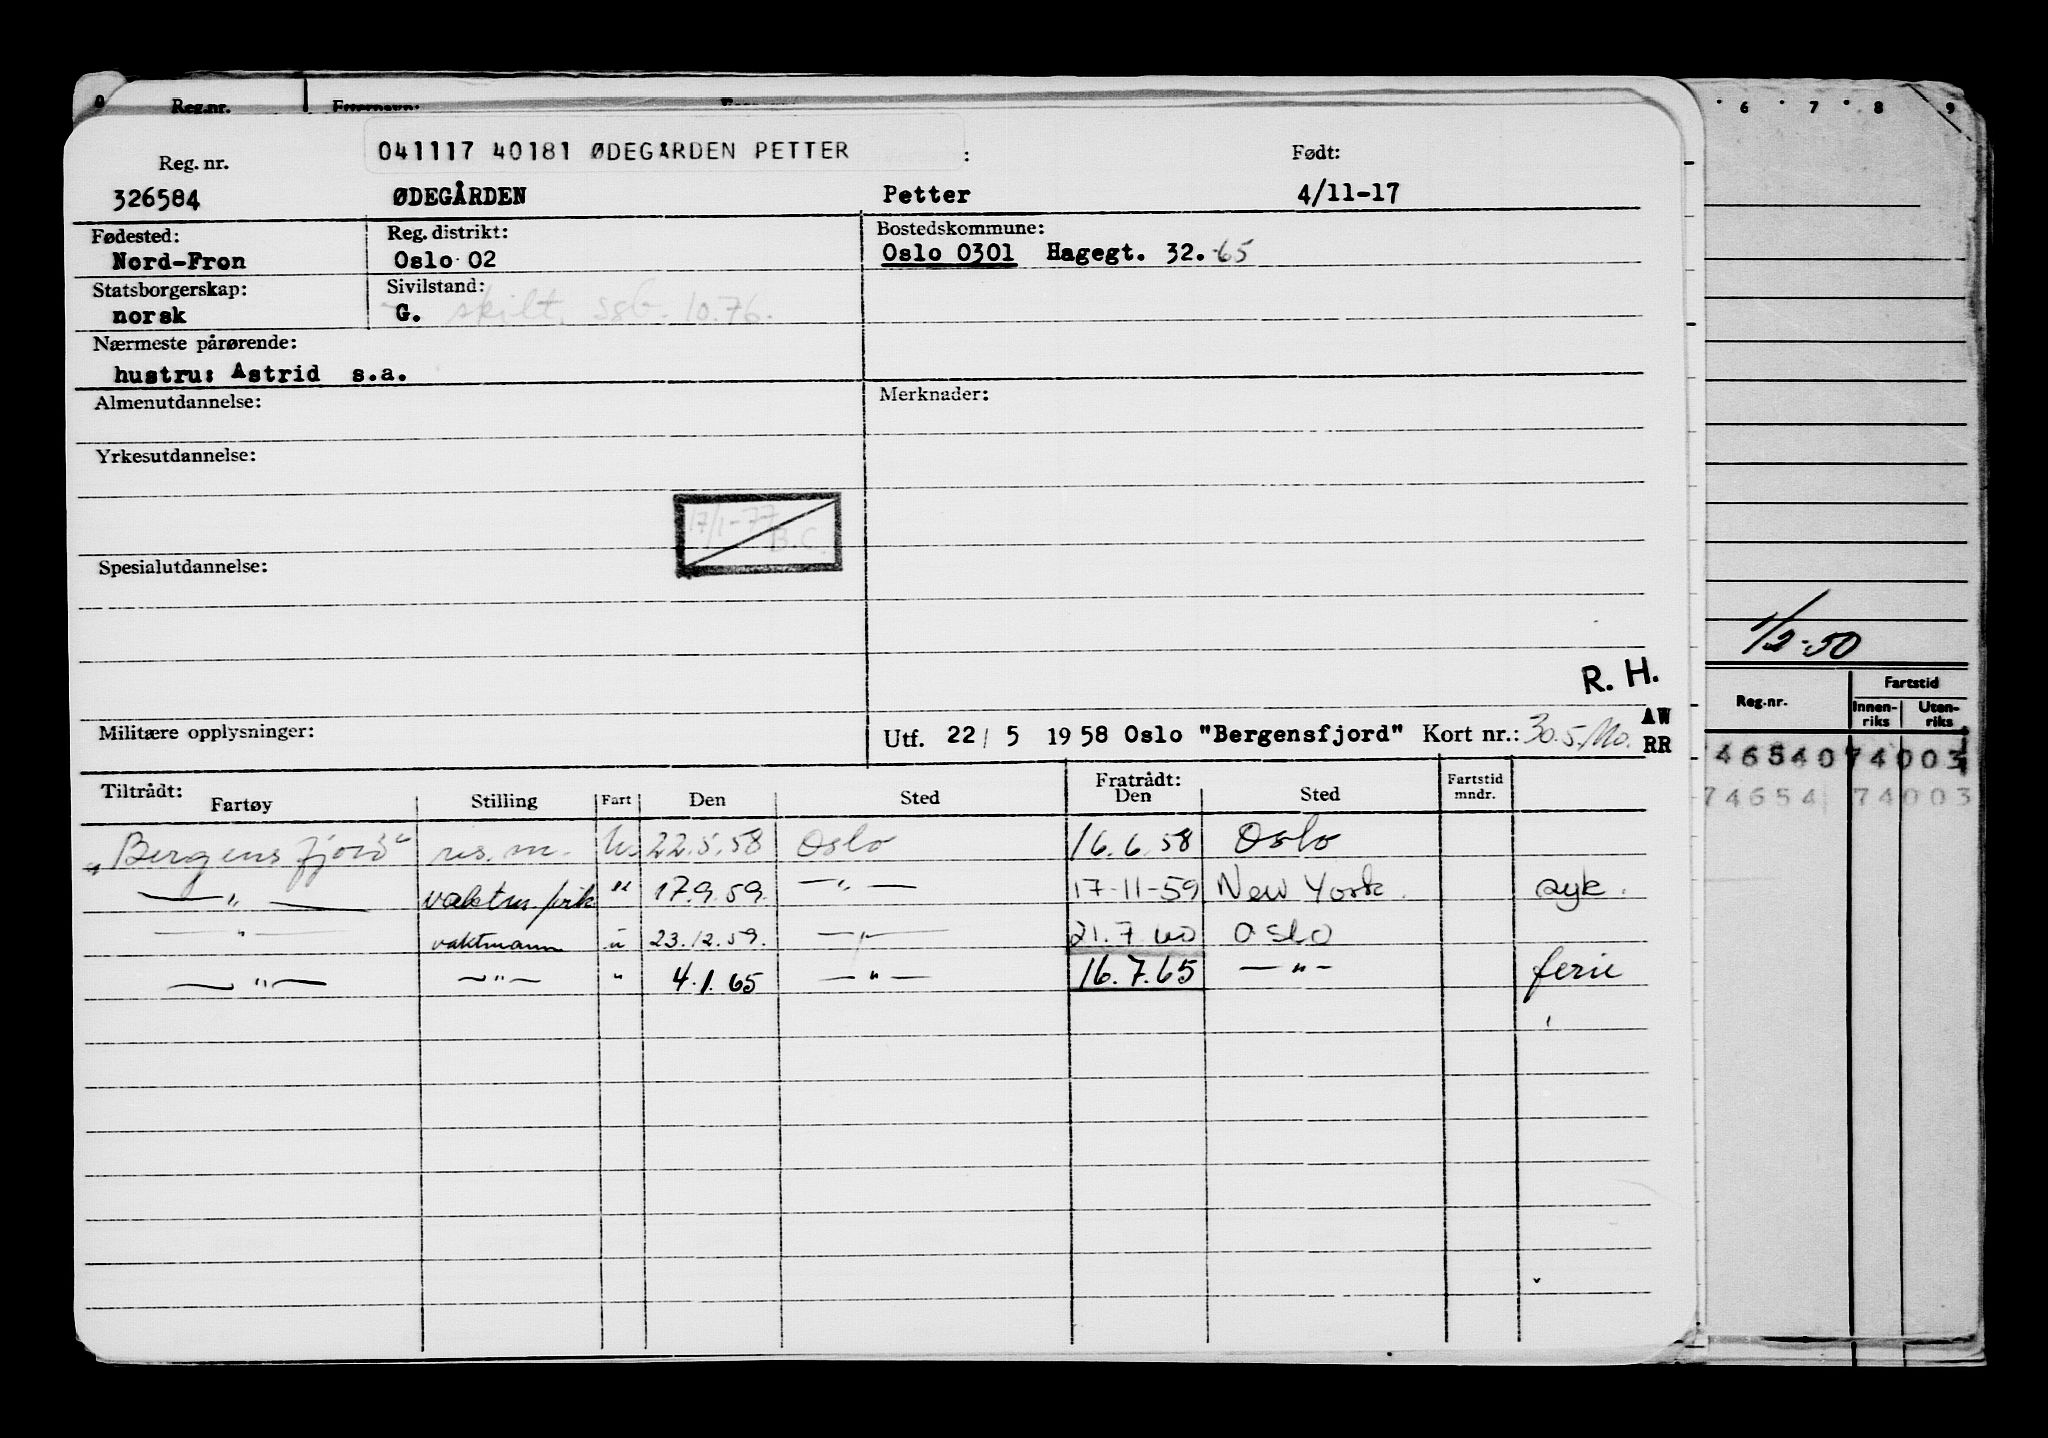 Reg.nr. Fornavn:
6 7 8 9
041117 40181 ØDEGÅRDEN PETTER
Reg. nr. : Født:
326584 ØDEGÅRDEN Petter 4/11-17
Fødested: Reg. distrikt: Bostedskommune:
Nord-Fron Oslo 02 Oslo 0301 Hagegt. 32. -65
Statsborgerskap: Sivilstand:
norsk G. skilt, ssb. 10.76.
Nærmeste pårørende:
hustru: Astrid s.a.
Almenutdannelse: Merknader:
Yrkesutdannelse:
17/1-77
B.C.
Spesialutdannelse:
1/2-50
R. H.
Militære opplysninger: Utf. 22/5 1958 Oslo "Bergensfjord" Kort nr.: 30.5.
AW
RR
Reg.nr. Fartstid
Innenriks Utenriks
74654074003
74654 74003
Tiltrådt: Fratrådt:
Fartøy Stilling Fart Den Sted Den Sted Fartstid mndr.
"Bergensfjord" res. m. u. 22.5.58 Oslo 16.6.58 Oslo
— " — " 17.9.59. — " — 17-11-59 New York. syk.
— " — vaktmann u 23.12.59. — " — 21.7.60 Oslo
— " — — " — " 4.1.65 — " — 16.7.65 — " — ferie